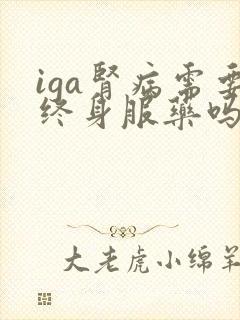 iga腎病需要
终身服藥吗
大老虎小绵羊